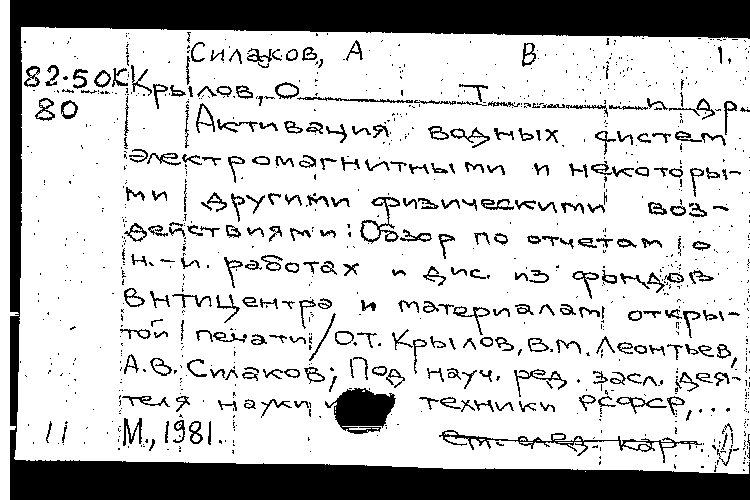 Силаков, А В 1.
82.50К Крылов, О Т и др.
80
Активация водных систем
электромагнитными и некоторы-
ми другими физическими воз-
действиями: Обзор по отчетам о
н.-и. работах и дис. из фондов
ВНТИЦентра и материалам откры-
той печати/О.Т. Крылов, В.М. Леонтьев,
А.В. Силаков; Под науч. ред. засл. дея-
теля науки и техники РСФСР,...
11 М., 1981.
см. след. карт.